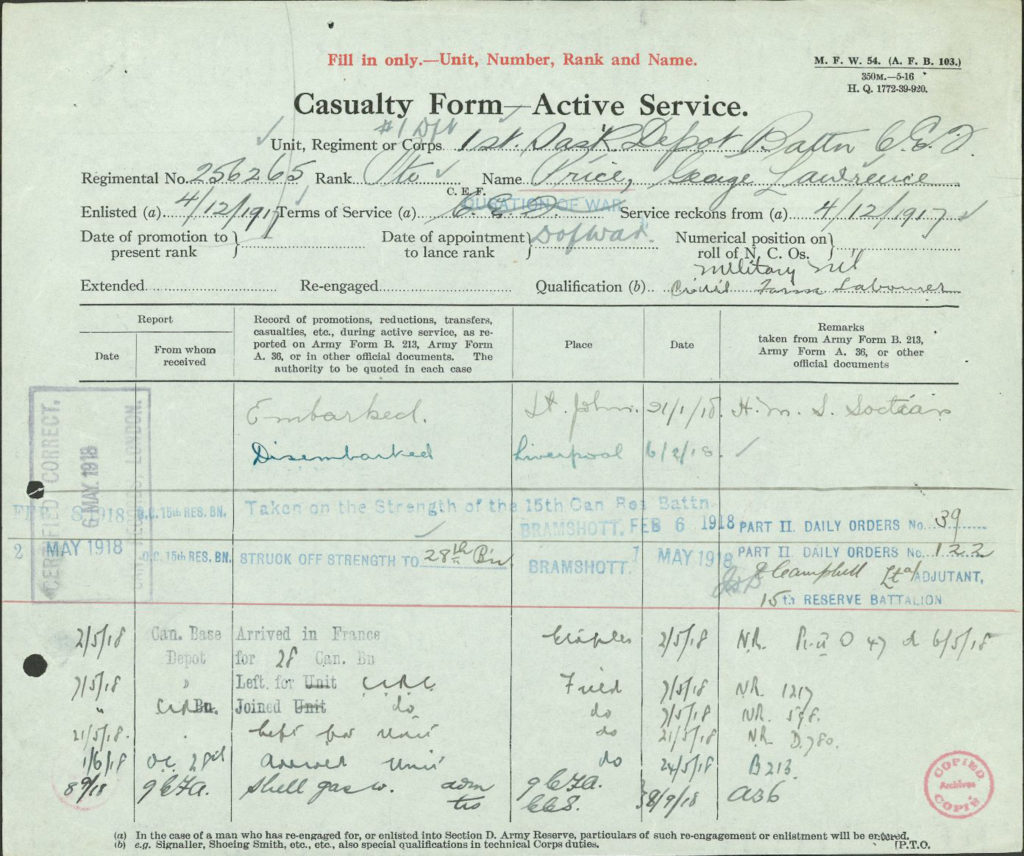 Fill in only.—Unit, Number, Rank and Name.
M. F. W. 54. (A. F. B. 103.)
350M.—5-16
H. Q. 1772-39-920.
Casualty Form—Active Service.
#1 Dpt
Unit, Regiment or Corps 1st. Sask Depot Battn C.E.F.
Regimental No. 256265 Rank Pte Name Price, George Lawrence
C. E. F.
Enlisted (a) 4/12/1917 Terms of Service (a) C.E.F. DURATION OF WAR Service reckons from (a) 4/12/1917
Date of promotion to present rank } Date of appointment to lance rank } D of War. Numerical position on roll of N. C. Os. }
Military Nil
Extended Re-engaged Qualification (b) Civil Farm Labourer
Report
Date
From whom received
Record of promotions, reductions, transfers, casualties, etc., during active service, as reported on Army Form B. 213, Army Form A. 36, or in other official documents. The authority to be quoted in each case
Place
Date
Remarks
taken from Army Form B. 213, Army Form A. 36, or other official documents
Embarked. St. John. 21/1/18 H.M.S.
Disembarked Liverpool 6/2/18.
CERTIFIED CORRECT.
6 MAY 1918
LONDON.
FEB 8 1918 O.C. 15th RES. BN. Taken on the Strength of the 15th Can Res Battn. BRAMSHOTT. FEB 6 1918 PART II. DAILY ORDERS No. 39
2 MAY 1918 O.C. 15th RES. BN. STRUCK OFF STRENGTH TO 28th Bn BRAMSHOTT. 1 MAY 1918 PART II DAILY ORDERS No. 122
Campbell Lt a/ ADJUTANT,
15th RESERVE BATTALION
2/5/18 Can. Base Depot Arrived in France for 28 Can. Bn Etaples 2/5/18 N.R. Pt II O 47 d 6/5/18
7/5/18 " Left for Unit C.C.R.C. Field 7/5/18 N.R. 1217
" Bn. Joined Unit do do 7/5/18 N.R. 598.
21/5/18. Left for unit do 21/5/18 N.R. D.780.
1/6/18 OC. 28th arrived Unit do 24/5/18 B213.
8/9/18 9 CFA. Shell gas w. adm 9 CFA. 8/9/18 A36
CCS.
COPIED
Archives
COPIÉ
(a) In the case of a man who has re-engaged for, or enlisted into Section D. Army Reserve, particulars of such re-engagement or enlistment will be entered.
(b) e.g. Signaller, Shoeing Smith, etc., etc., also special qualifications in technical Corps duties. [P.T.O.